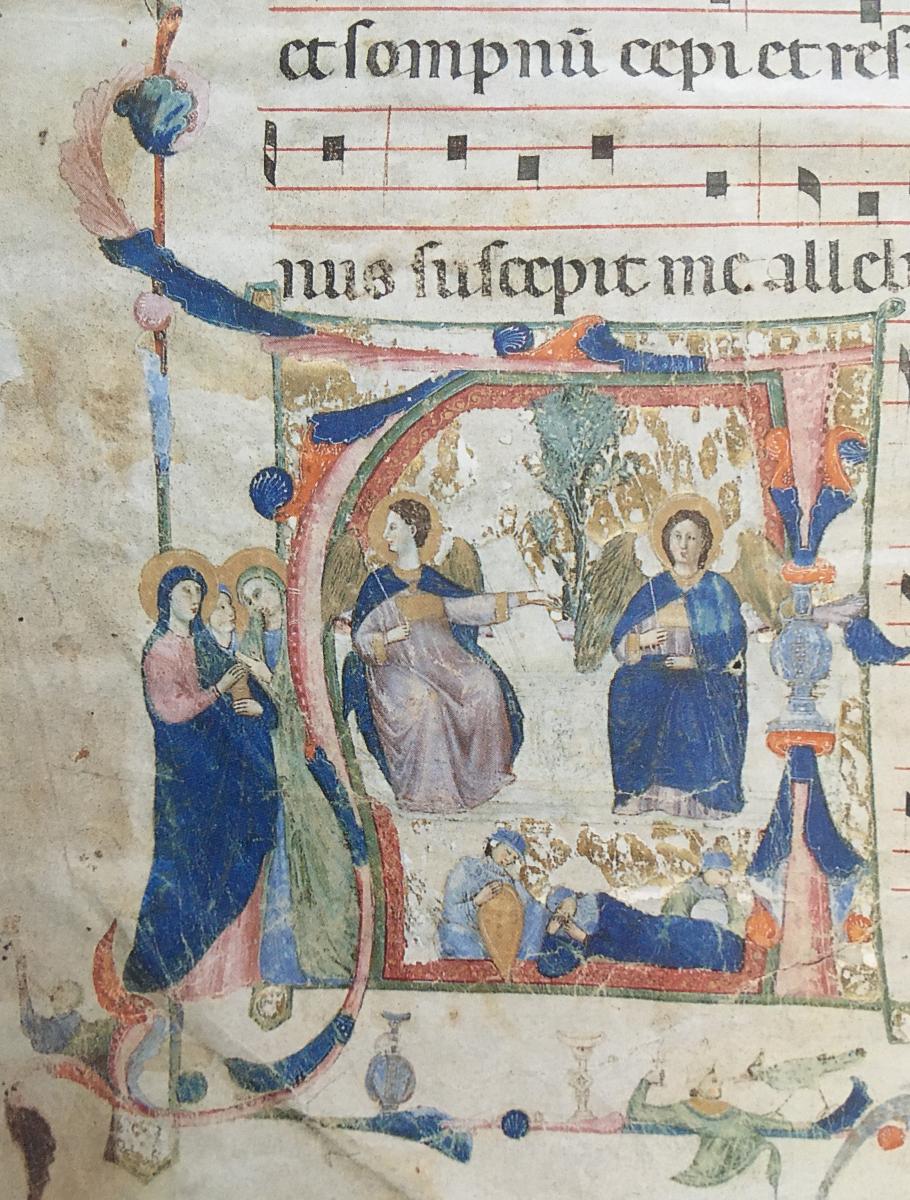 et sompnū cepi et res
nus suscepit me. alle